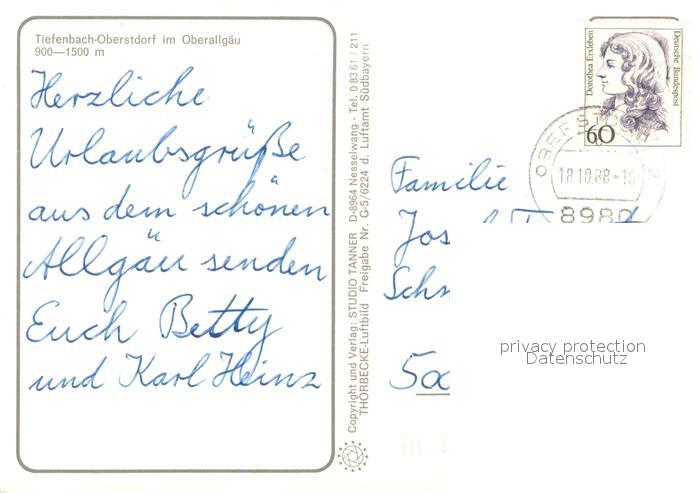 Tiefenbach-Oberstdorf im Oberallgäu
900—1500 m
Herzliche
Urlaubsgrüße
aus dem schönen
Allgäu senden
Euch Betty
und Karl Heinz
Copyright und Verlag: STUDIO TANNER D-8964 Nesselwang · Tel. 08361 / 211
THORBECKE-Luftbild Freigabe Nr. G-5/6224 d. Luftamt Südbayern
Dorothea Erxleben
Deutsche Bundespost
60
18.10.88-16
8980
Familie
privacy protection
Datenschutz